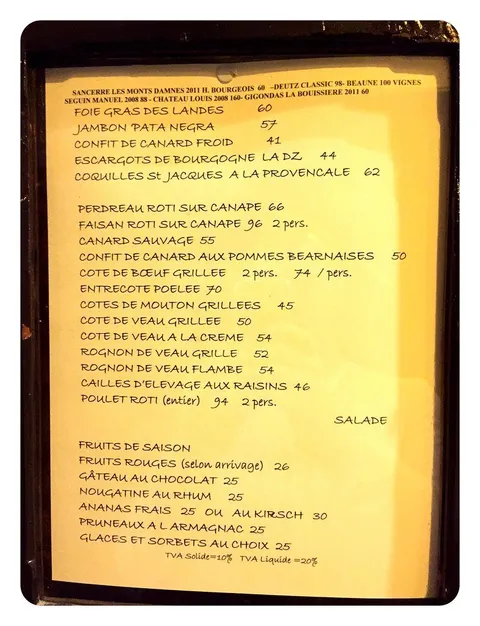 SANCERRE LES MONTS DAMNES 2011 H. BOURGEOIS 60 -DEUTZ CLASSIC 98- BEAUNE 100 VIGNES
SEGUIN MANUEL 2008 88 - CHATEAU LOUIS 2008 160- GIGONDAS LA BOUISSIERE 2011 60
FOIE GRAS DES LANDES 60
JAMBON 'PATA NEGRA 57
CONFIT DE CANARD FROID 41
ESCARGOTS DE BOURGOGNE LA DZ 44
COQUILLES St JACQUES A LA PROVENCALE 62
PERDREAU ROTI SUR CANAPE 66
FAISAN ROTI SUR CANAPE 96 2 pers.
CANARD SAUVAGE 55
CONFIT DE CANARD AUX POMMES BEARNAISES 50
COTE DE BŒUF GRILLEE 2 pers. 74 / pers.
ENTRECOTE POELEE 70
COTES DE MOUTON GRILLEES 45
COTE DE VEAU GRILLEE 50
COTE DE VEAU A LA CREME 54
ROGNON DE VEAU GRILLE 52
ROGNON DE VEAU FLAMBE 54
CAILLES D'ELEVAGE AUX RAISINS 46
POULET ROTI (entier) 94 2 pers.
SALADE
FRUITS DE SAISON
FRUITS ROUGES (selon arrivage) 26
GÂTEAU AU CHOCOLAT 25
NOUGATINE AU RHUM 25
ANANAS FRAIS 25 OU AU KIRSCH 30
PRUNEAUX A L ARMAGNAC 25
GLACES ET SORBETS AU CHOIX 25
TVA Solide=10% TVA Liquide =20%